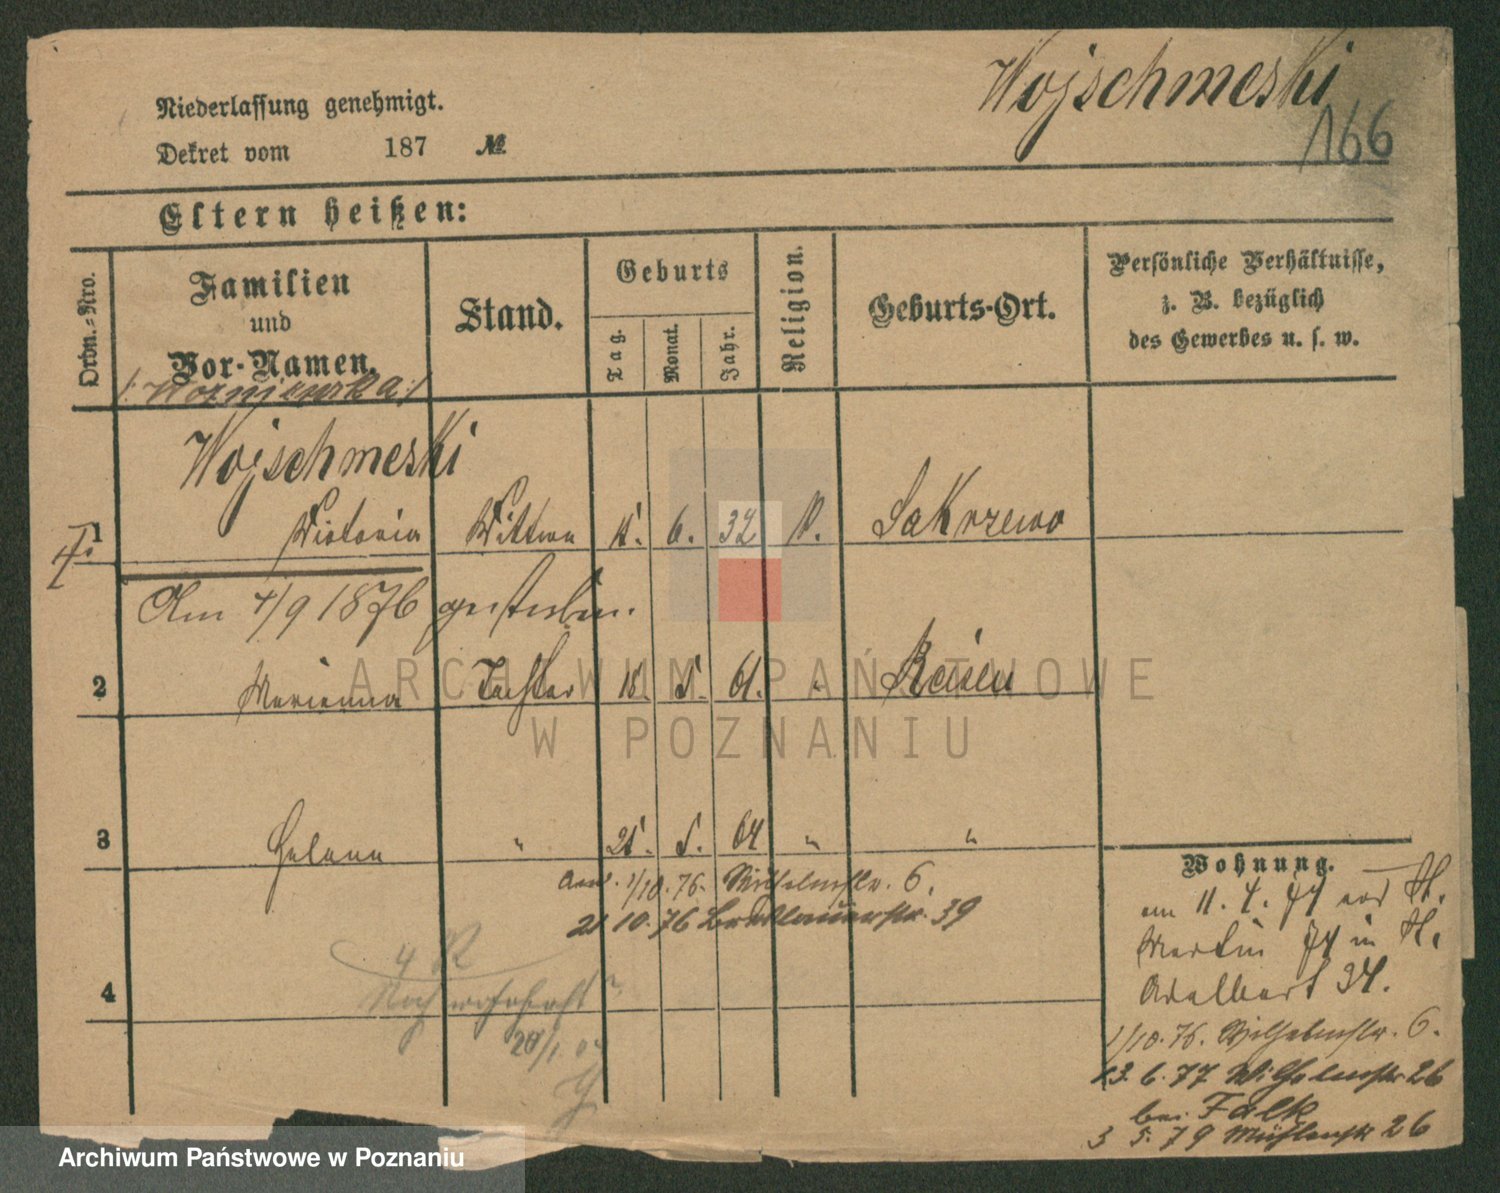 Wojschmeski
166
Niederlassung genehmigt.
Dekret vom 187 №
Eltern heißen:
Ordn.-Nro.
Familien und Vor-Namen.
Stand.
Geburts
Tag.
Monat.
Jahr.
Religion.
Geburts-Ort.
Persönliche Verhältnisse,
z. B. bezüglich
des Gewerbes u. s. w.
Wojschmeski
1 Victoria Wittwe 6. 32 Sakrzewo
Am 4/9 1876 gestorben.
2 Marianna Tochter 61. " Reisen
3 Helena " 64 " "
1/10. 76. Wilhelmstr. 6.
21 10. 76 Breslauerstr. 39
4
Noch wohnhaft?
Wohnung.
am 11. 4. 74 von St.
Martin 74 in St.
Adalbert 34.
1/10. 76. Wilhelmstr. 6.
13. 6. 77 Wilhelmstr 26
bei Falk
3 5. 79 Mühlenstr 26
ARCHIWUM PAŃSTWOWE
W POZNANIU
Archiwum Państwowe w Poznaniu